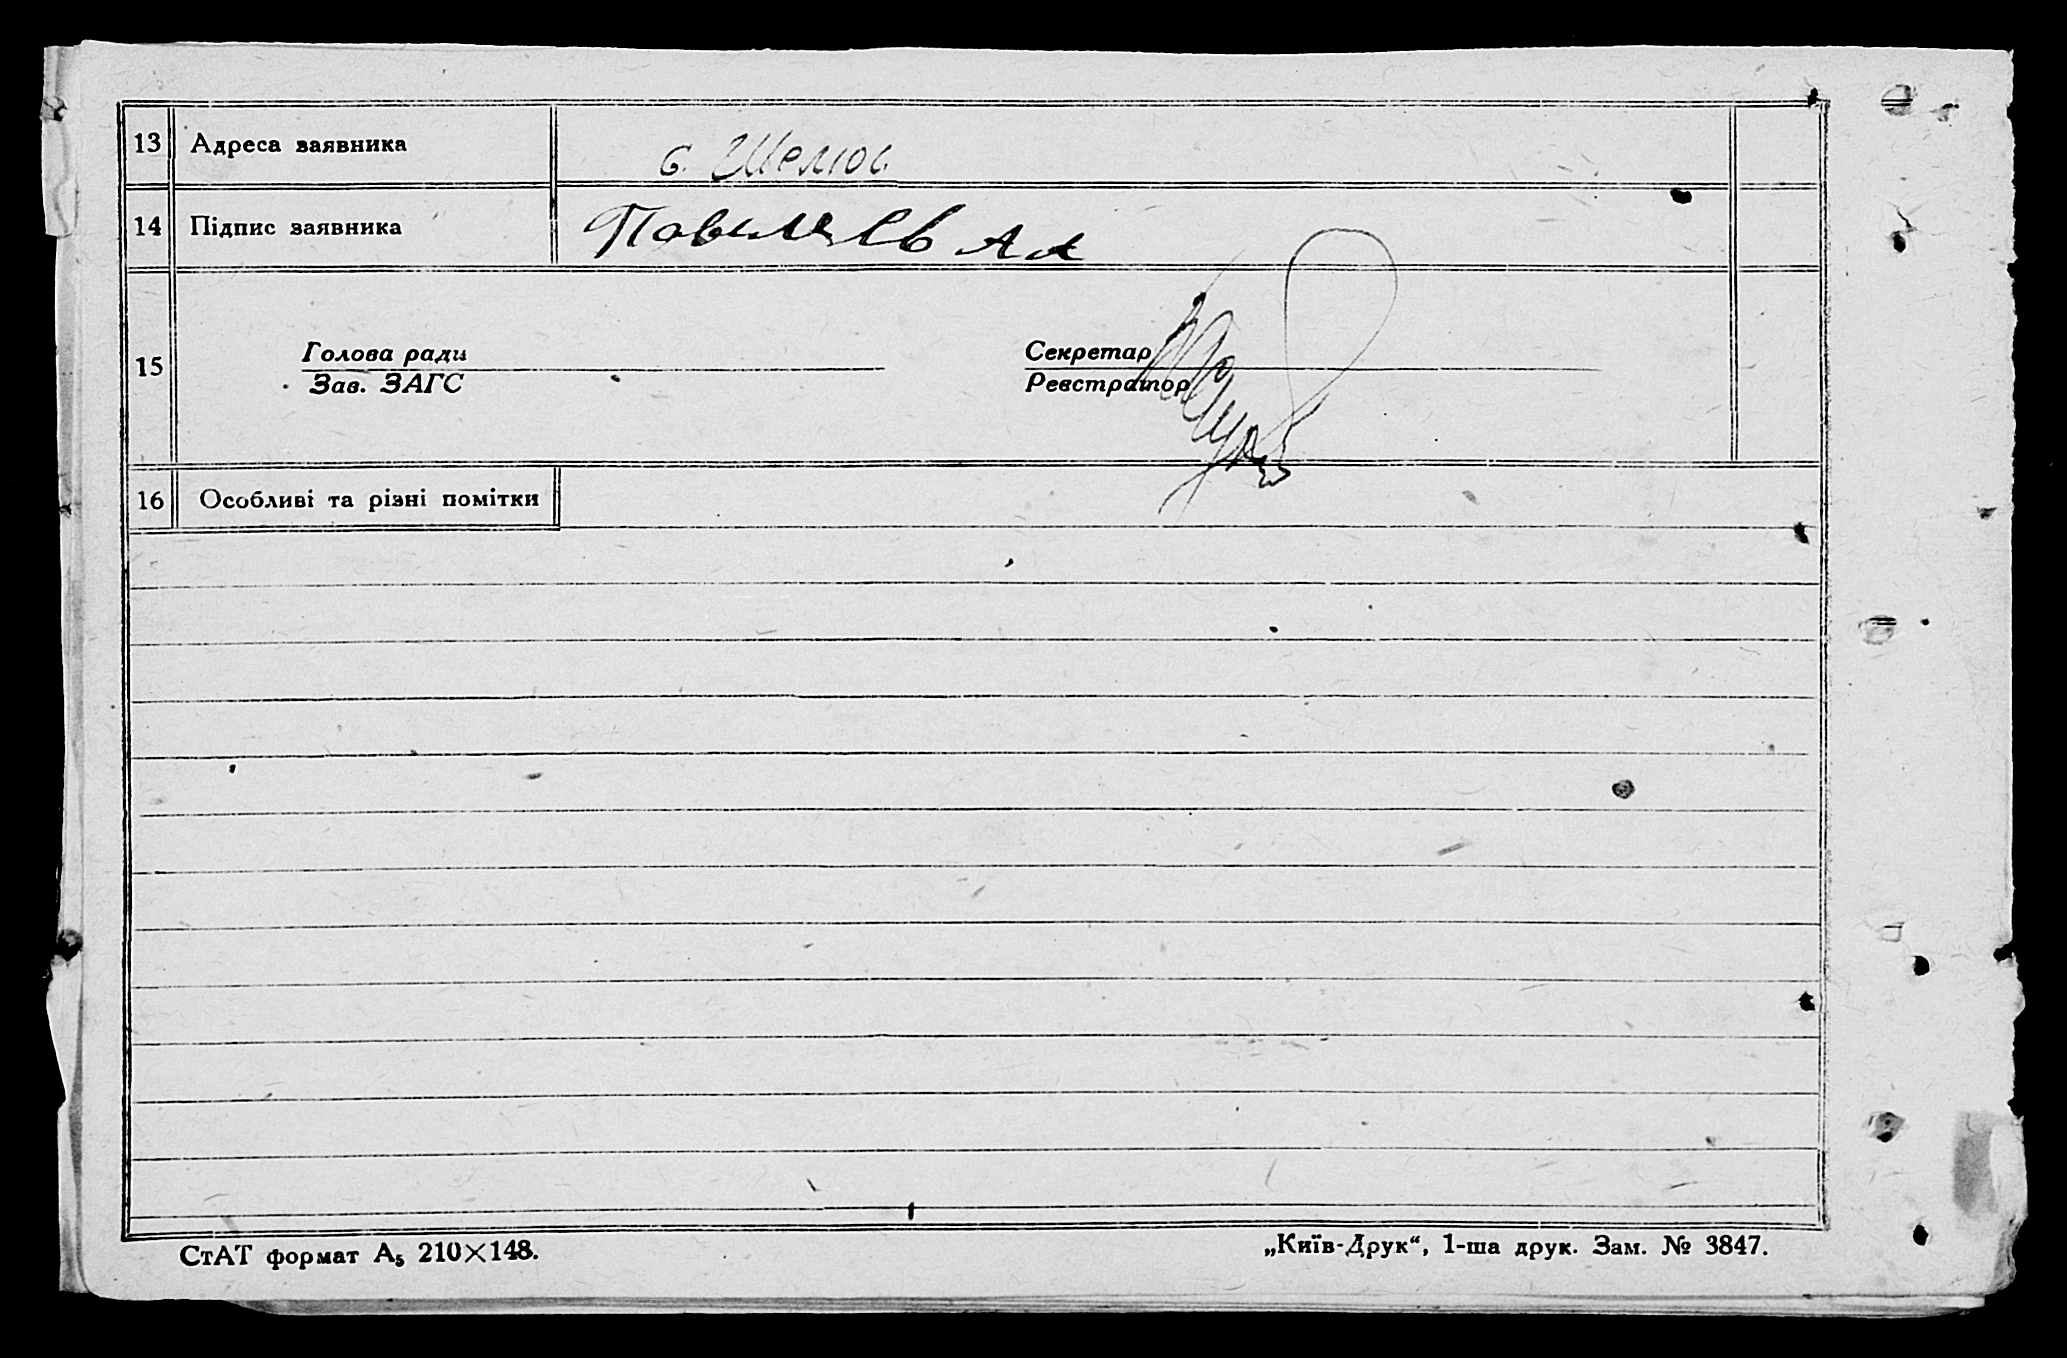 13 Адреса заявника с. Шелюг
14 Підпис заявника
15 Голова ради Секретар
Зав. ЗАГС Реєстратор
16 Особливі та різні помітки
СтАТ формат А₅ 210×148. „Київ-Друк“, 1-ша друк. Зам. № 3847.